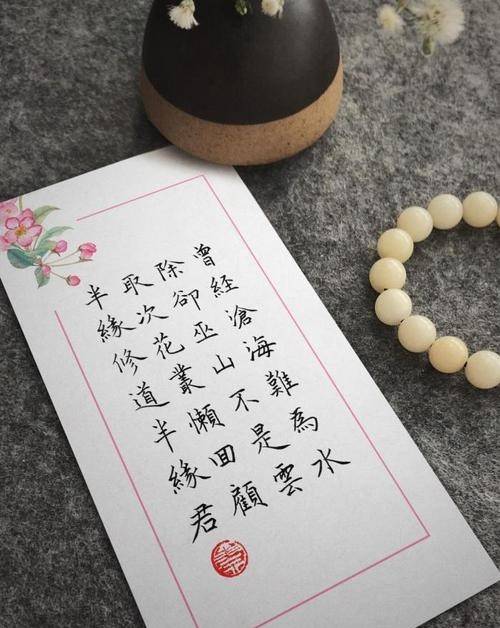 曾経滄海難為水
除卻巫山不是雲
取次花叢懶回顧
半緣修道半緣君